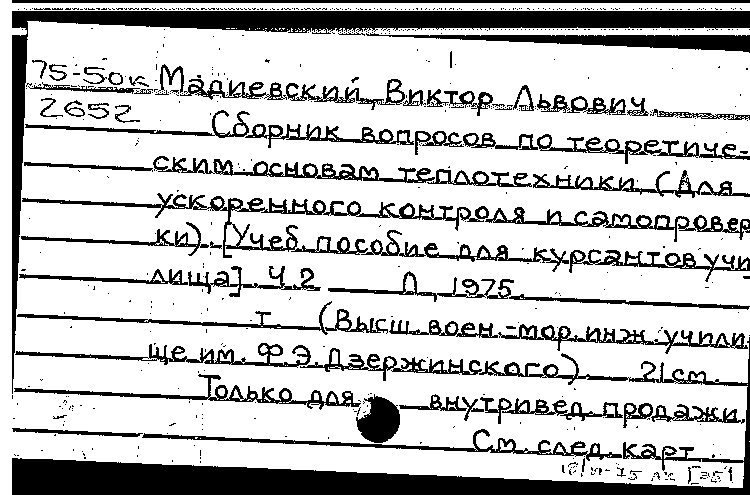 75-50к Мадиевский, Виктор Львович.
2652
Сборник вопросов по теоретиче-
ским основам теплотехники. (Для
ускоренного контроля и самопровер
ки). [Учеб. пособие для курсантов учи
лища]. Ч.2 Л, 1975.
т. (Высш. воен.-мор. инж. учили
ще им. Ф.Э. Дзержинского). 21 см.
Только для внутривед. продажи.
См. след. карт.